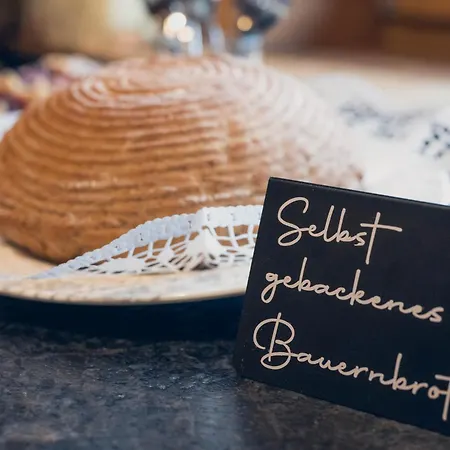 Selbst
gebackenes
Bauernbrot